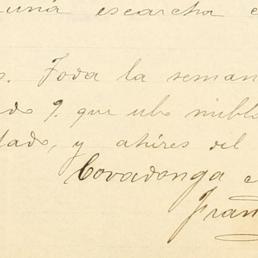 una escarcha e
s. Toda la seman
do 9. que ubo niebl
dado, y ahires del
Covadonga e
Fran